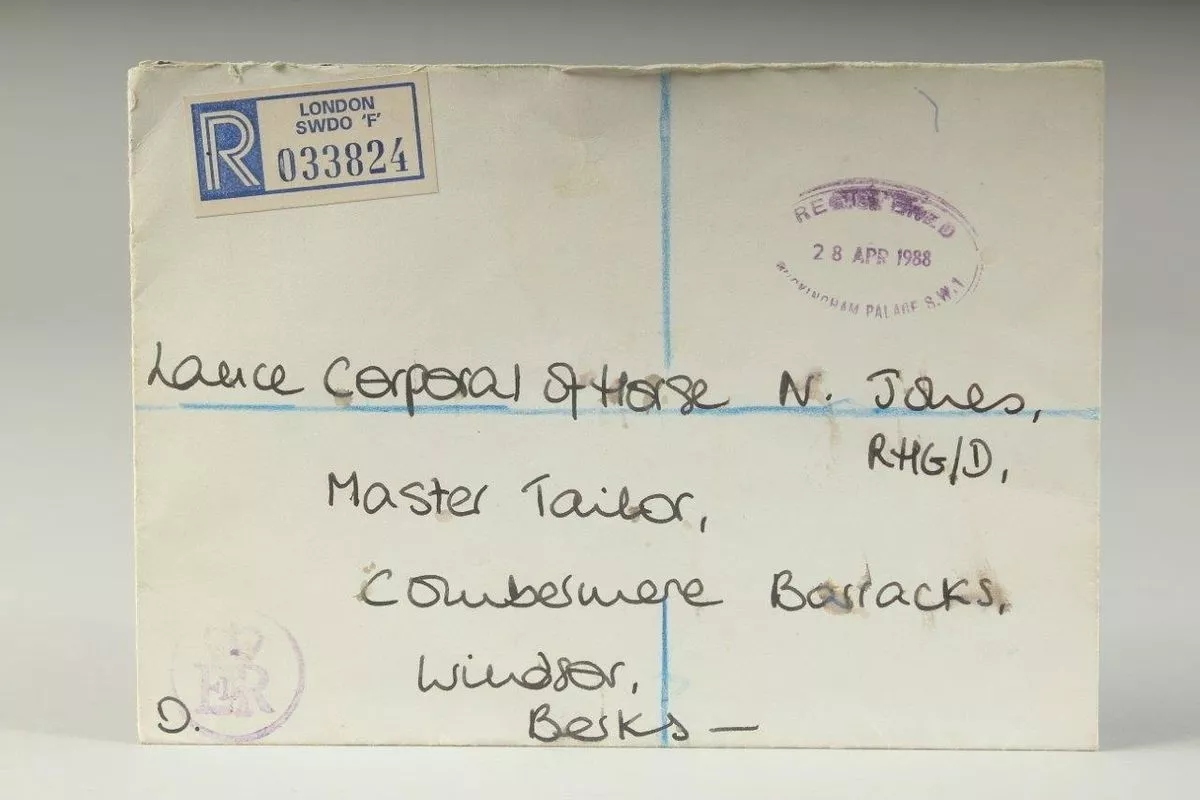 R
LONDON
SWDO 'F'
033824
REGISTERED
28 APR 1988
BUCKINGHAM PALACE S.W.1
Lance Corporal of Horse N. Jones,
RHG/D,
Master Tailor,
Combermere Barracks,
Windsor,
Berks —
EIIR
D.